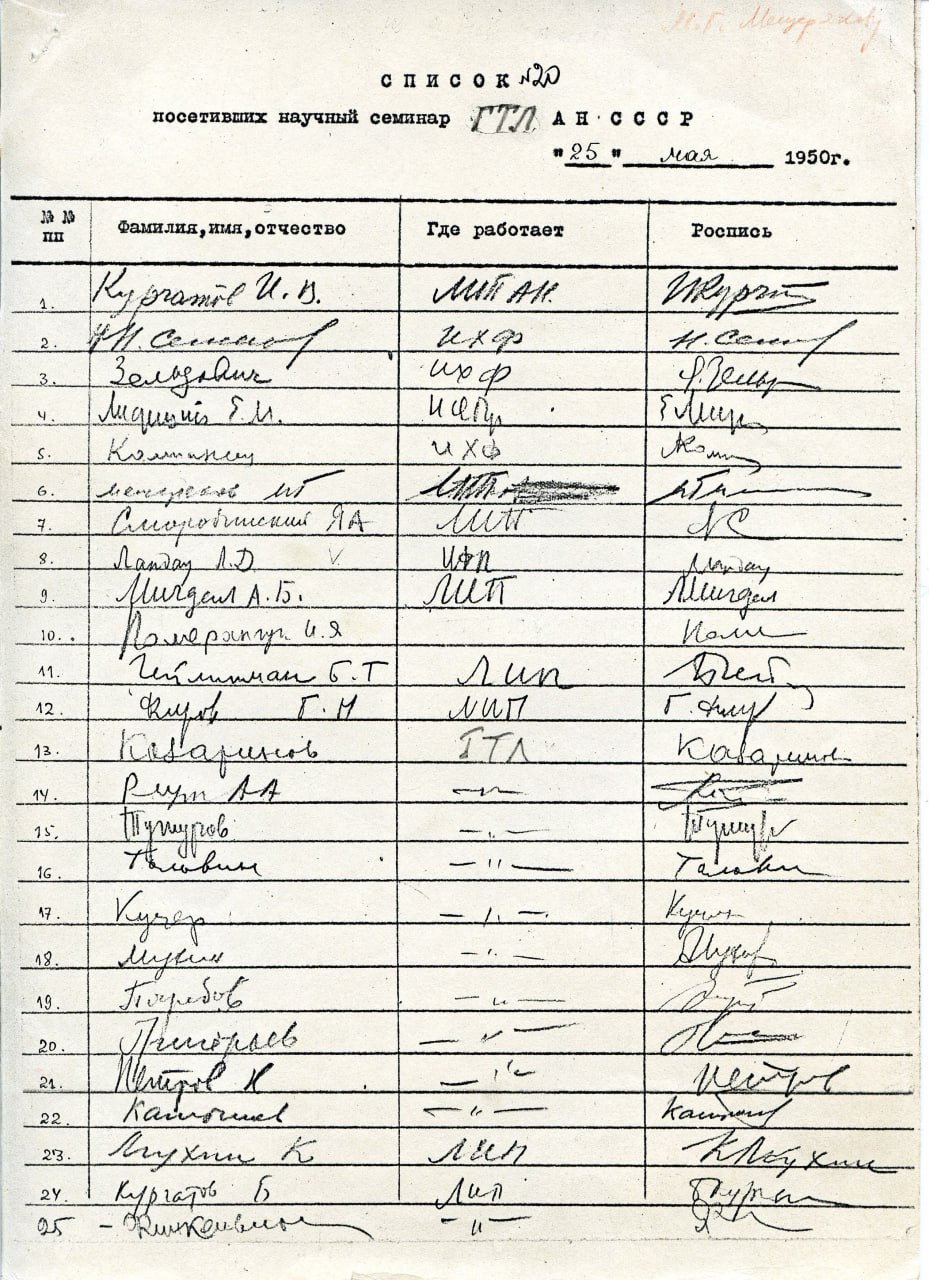 М. Г. Мещерякову
СПИСОК №20
посетивших научный семинар ГТЛ АН СССР
"25" мая 1950г.
№ № пп Фамилия,имя,отчество Где работает Роспись
1. Курчатов И. В. ЛИПАН. ИКурчат
2. Н.Н. Семенов ИХФ Н. Семенов
3. Зельдович ИХФ Я. Зельд
4. Г.М.
5. Компанеец ИХФ Комп
6. МГ ЛИП
7. Смородинский ЯА ЛИП ЯС
8. Ландау Л.Д. V ИФП Ландау
9. Мигдал А.Б. ЛИП АМигдал
10. Померанчук И.Я Поме
11. Гейликман Б.Т ЛИП БГей
12. Флеров Г.Н ЛИП Г. Флер
13. Казаринов ГТЛ Казаринов
14. АА —"—
15. —"—
16. Головин —"— Головин
17. Кучер —"— Кучер
18. Мухин —"—
19. —"—
20. Григорьев —"—
21. Петров Н —"— Петров
22. Катышев —"— Катышев
23. Мухин К ЛИП КМухин
24. Курчатов Б ЛИП БКурча
25 - —"—